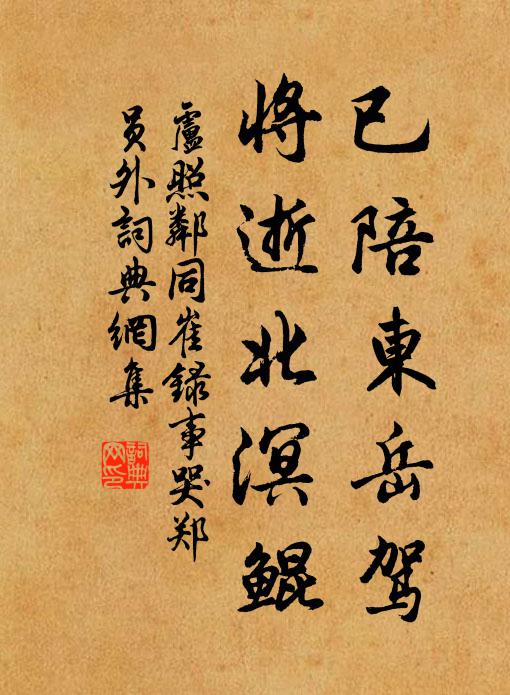 已陪東岳駕
將逝北溟鯤
盧照鄰同崔録事哭郑
员外詞典網集
詞典网印